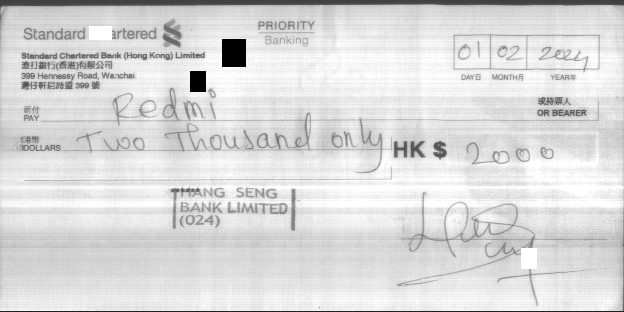 Standard artered
PRIORITY
Banking
Standard Chartered Bank (Hong Kong) Limited
渣打銀行(香港)有限公司
399 Hennessy Road, Wanchai
灣仔軒尼詩道 399 號
01 02 2024
DAY日 MONTH月 YEAR年
祈付
PAY Redmi
或持票人
OR BEARER
港幣
DOLLARS Two Thousand only
HK $ 2000
HANG SENG
BANK LIMITED
(024)